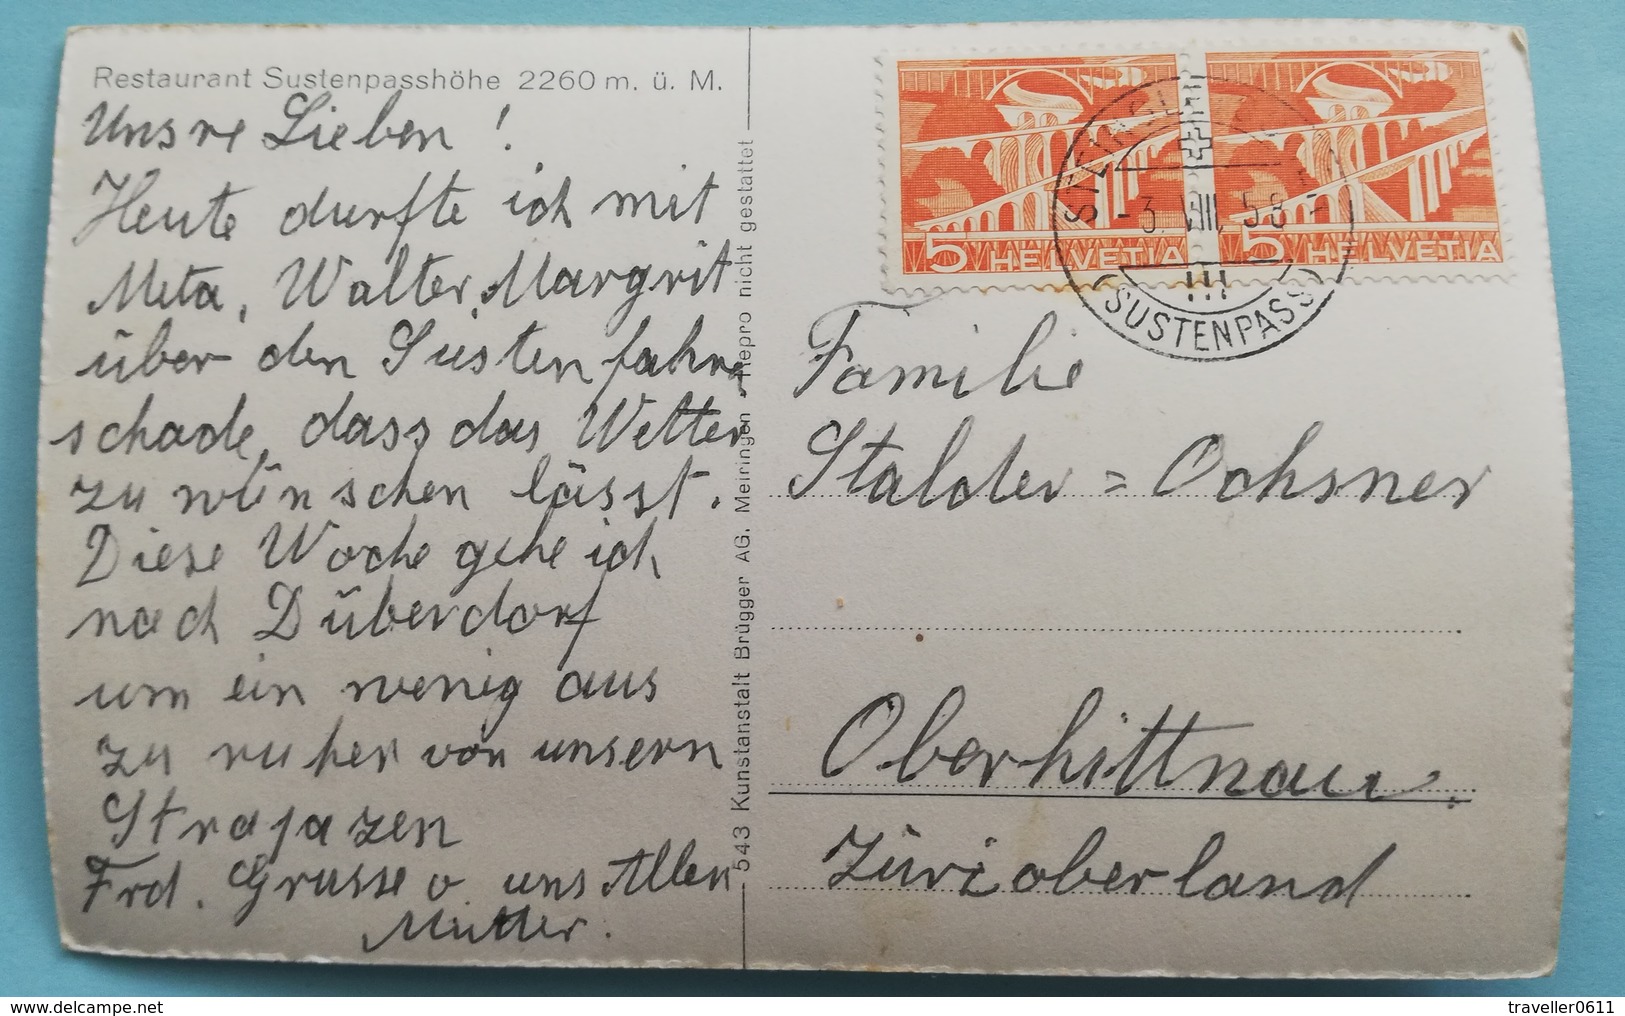 Restaurant Sustenpasshöhe 2260 m. ü. M.
Unsre Lieben !
Heute durfte ich mit
Meta, Walter, Margrit
über den Susten fahre
schade, dass das Wetter
zu wünschen lässt.
Diese Woche gehe ich
nach Düberdorf
um ein wenig aus
zu ruhen von unsern
Strapazen
Frd. Grüsse v uns Allen
Mutter.
543 Kunstanstalt Brügger AG. Meiringen - Repro nicht gestattet
5 HELVETIA
5 HELVETIA
-3. VIII. 58 -
(SUSTENPASS)
Familie
Stalder = Ochsner
Oberhittnau.
Zürioberland
www.delcampe.net
traveller0611